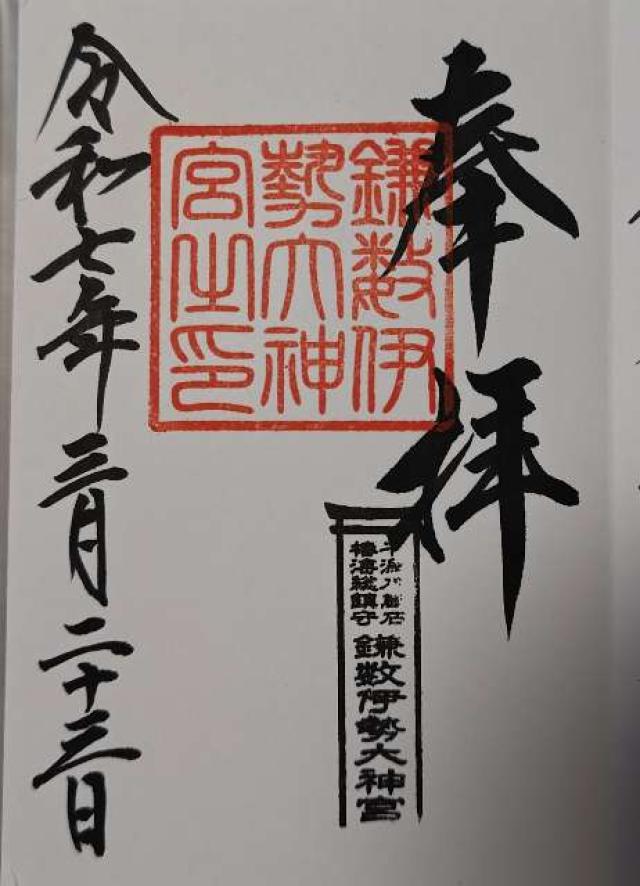 奉拝
鎌数伊
勢大神
宮之印
干潟八萬石
椿海総鎮守
鎌数伊勢大神宮
令和七年三月二十三日